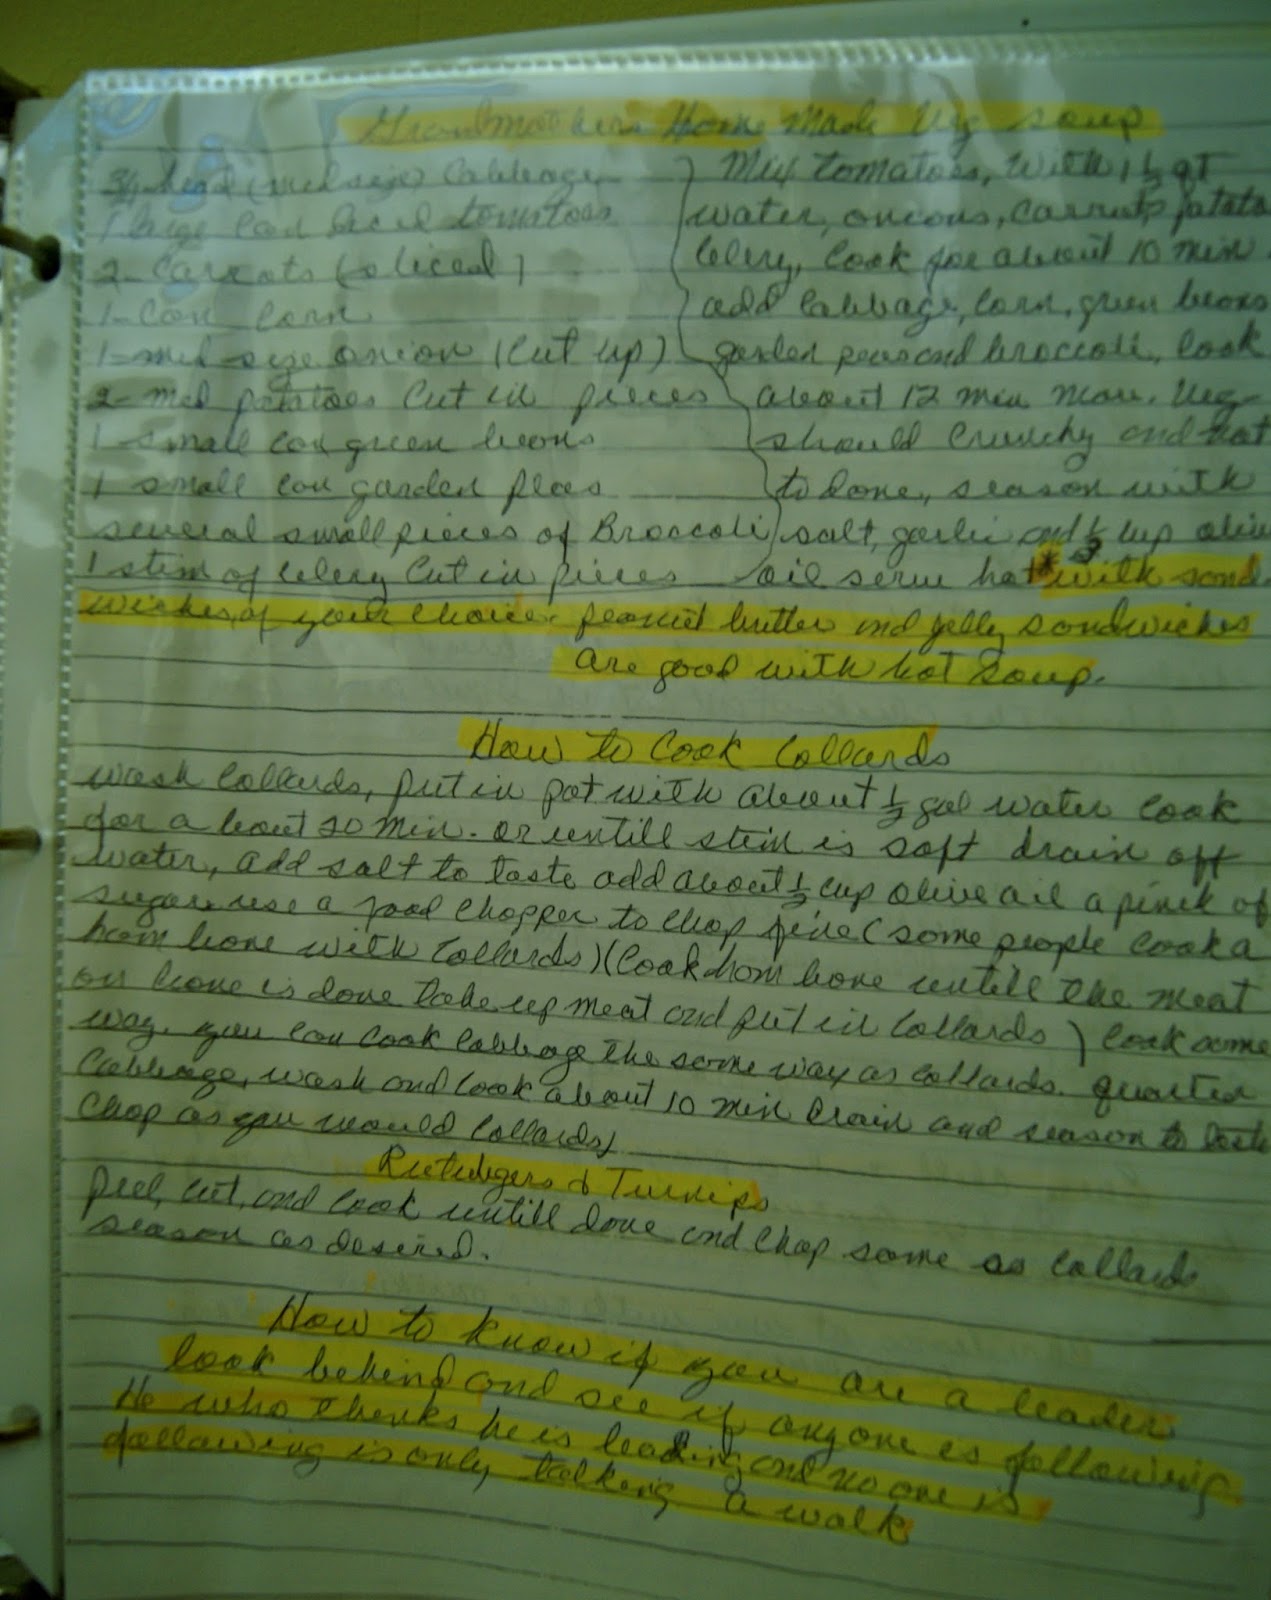 Grandmothers Home Made Veg soup
3/4 head (med size) Cabbage
1 large can diced tomatoes
2 - Carrots (sliced)
1 - Can Corn
1 - med size onion (Cut up)
2 - med potatoes Cut in pieces
1 small can green beans
1 small can garden peas
several small pieces of Broccoli
1 stem of Celery Cut in pieces
Mix tomatoes, with 1 1/2 qt
water, onions, carrots, potato
Celery, Cook for about 10 min
add Cabbage, Corn, green beans
garden peas and broccoli, Cook
about 12 min more. Veg
should Crunchy and not
to done, season with
salt, garlic and 1/3 cup olive
oil serve hot * with sand
wiches of your choice. peanut butter and jelly sandwiches
are good with hot soup.
How to Cook Collards
wash Collards, put in pot with about 1/2 gal water Cook
for about 20 min. or untill stem is soft drain off
water, add salt to taste add about 1/2 cup olive oil a pinch of
sugar use a food Chopper to Chop fine (some people Cook a
ham bone with Collards) (Cook ham bone untill the meat
on bone is done take up meat and put in Collards) Cook same
way. you can Cook Cabbage the same way as Collards. quarter
Cabbage, wash and Cook about 10 min drain and season to taste
Chop as you would Collards)
Rutedgers & Turnips
peel, cut, and Cook untill done and Chop same as Collards
season as desired.
How to know if you are a leader
look behind and see if anyone is following.
He who thinks he is leading and no one is
following is only talking a walk